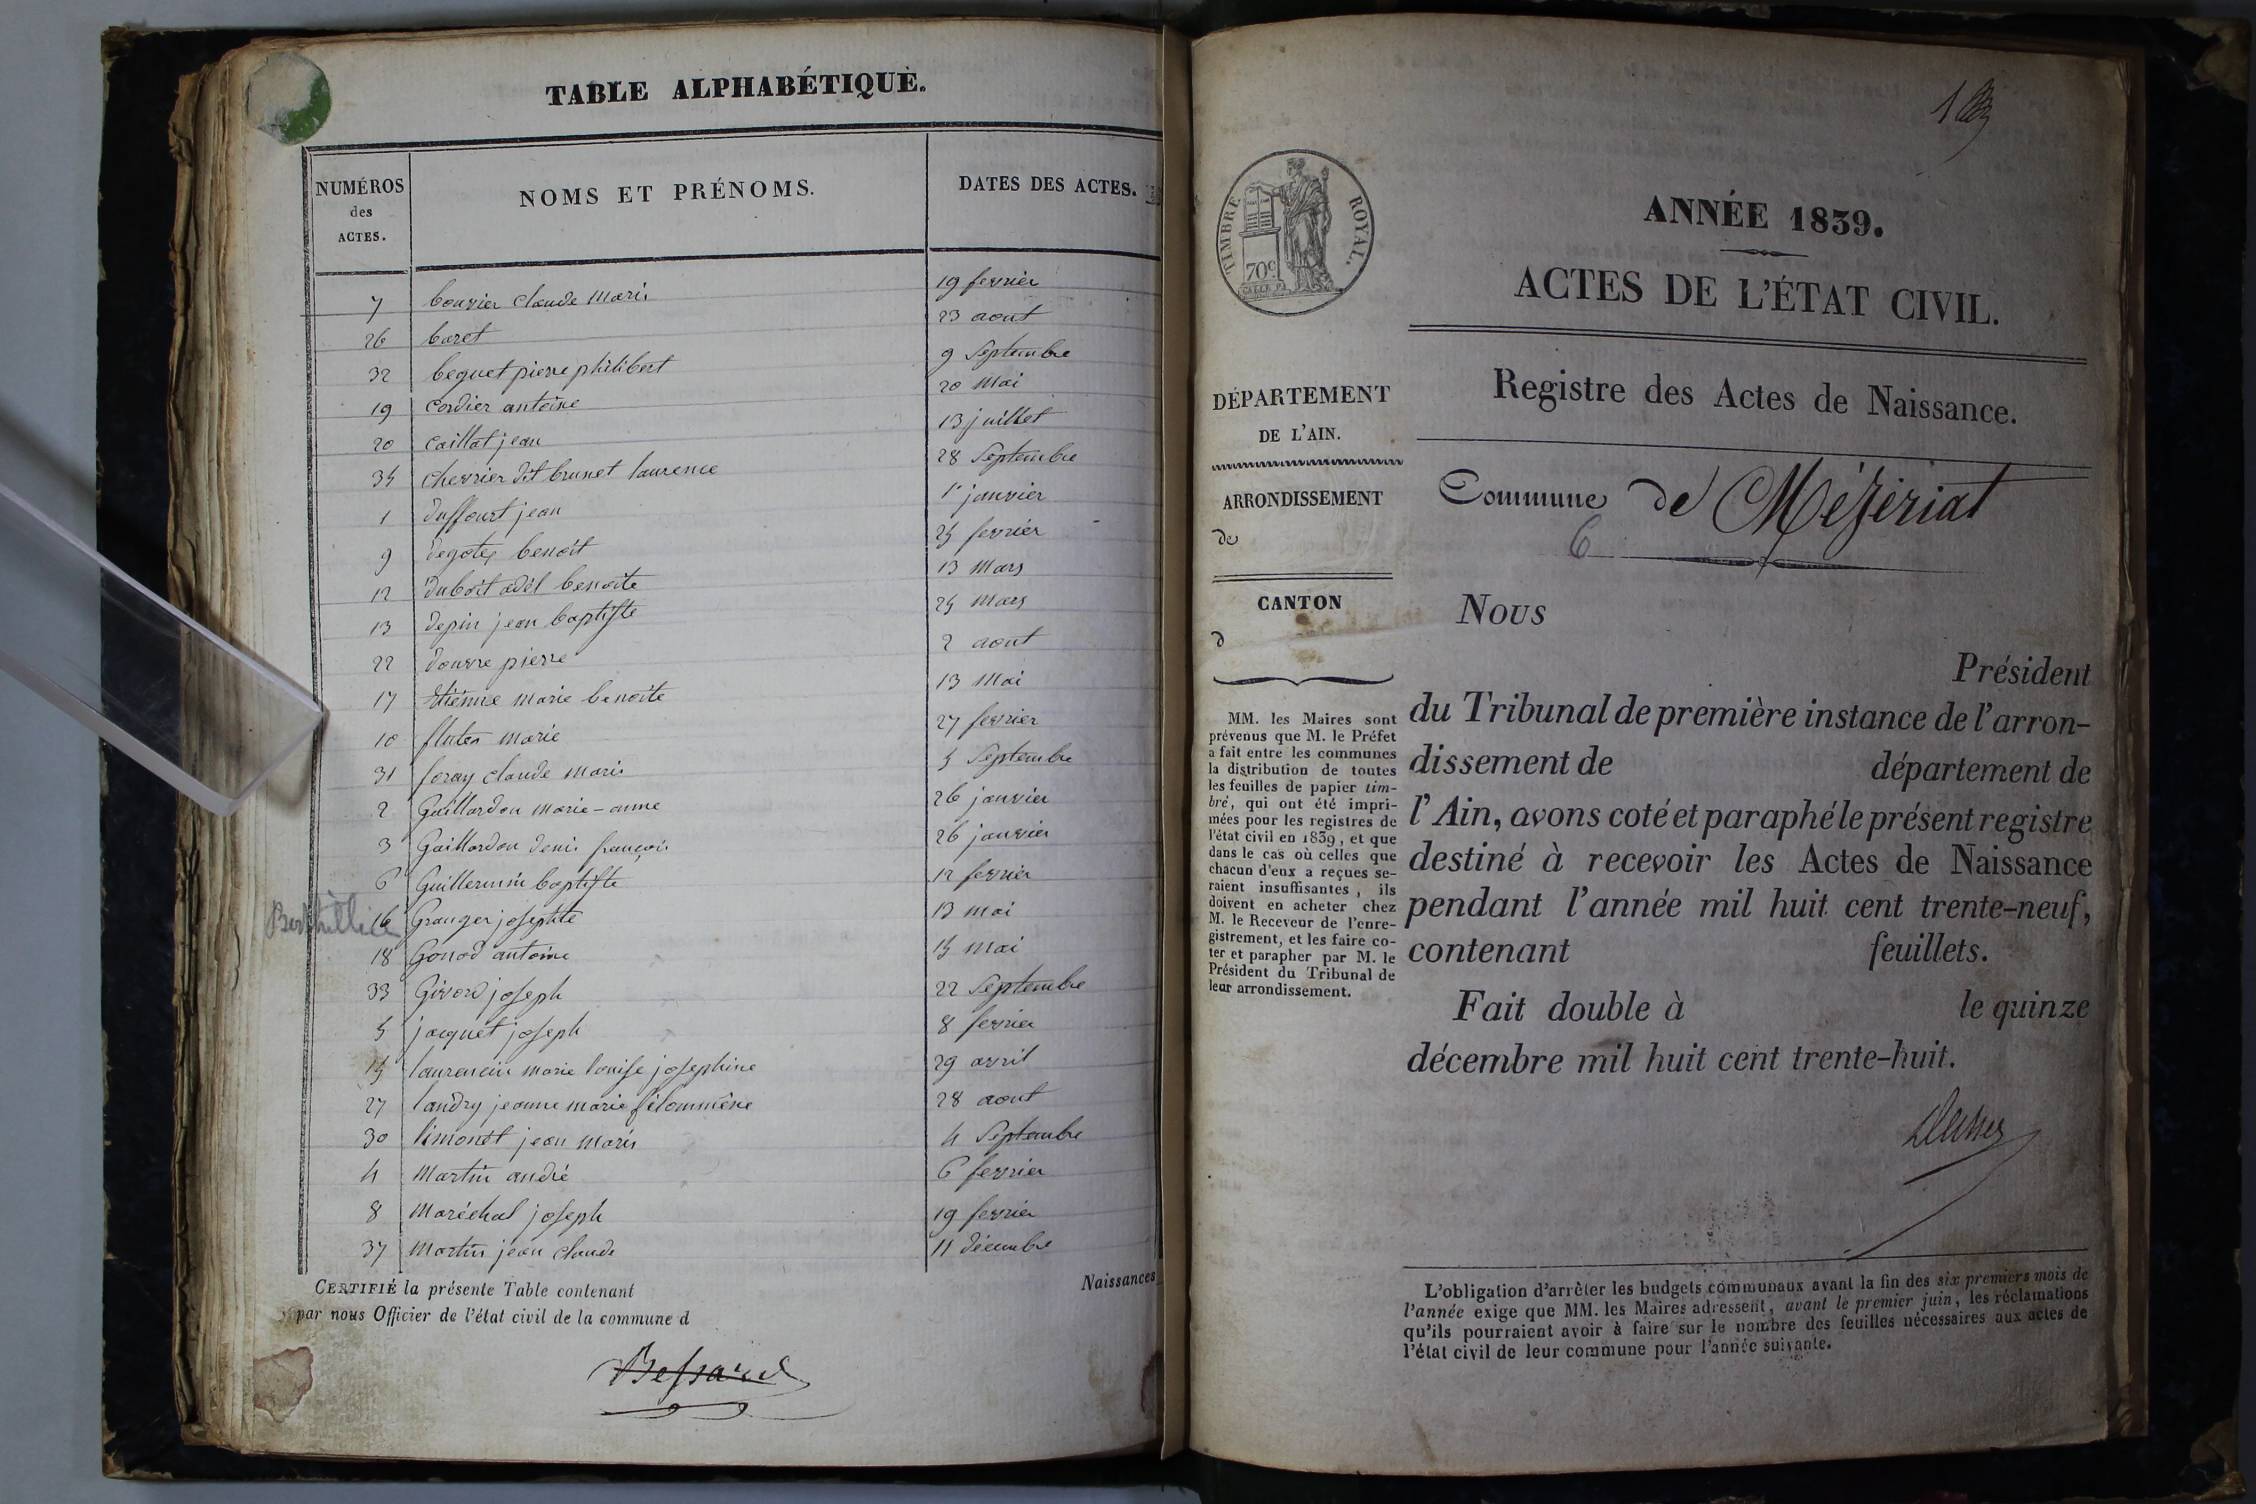 TABLE ALPHABÉTIQUE.
NUMÉROS des ACTES. NOMS ET PRÉNOMS. DATES DES ACTES.
7 bouvier claude marie 19 fevrier
26 buret 23 aout
32 beguet pierre philibert 9 Septembre
19 cordier antoine 20 Mai
20 caillat jean 13 juillet
34 chevrier dit brunet laurence 28 Septembre
1 duffourt jean 1er janvier
9 benoit 25 fevrier
12 duboit adèl benoite 13 Mars
13 depin jean baptiste 25 Mars
22 douvre pierre 2 aout
17 etienne marie benoite 13 Mai
10 marie 27 fevrier
31 foray claude marie 5 Septembre
2 Guillardon marie-anne 26 janvier
3 Gaillardon denis françois 26 janvier
6 Guillermin baptiste 12 fevrier
16 Granger josephte 13 mai
18 Gonod antoine 15 mai
33 Givord joseph 22 Septembre
5 jacquet joseph 8 fevrier
15 laurencin marie louise josephine 29 avril
27 landry jeanne marie félommène 28 aout
30 limonet jean marie 4 Septembre
4 Martin andré 6 fevrier
8 Maréchal joseph 19 fevrier
37 Martin jean claude 11 décembre
CERTIFIÉ la présente Table contenant Naissances
par nous Officier de l'état civil de la commune d
Bessard
1
TIMBRE ROYAL.
70c
ANNÉE 1839.
ACTES DE L'ÉTAT CIVIL.
Registre des Actes de Naissance.
Commune de Mézériat
6
DÉPARTEMENT
DE L'AIN.
ARRONDISSEMENT
de
CANTON
d
MM. les Maires sont
prévenus que M. le Préfet
a fait entre les communes
la distribution de toutes
les feuilles de papier tim-
bré, qui ont été impri-
mées pour les registres de
l'état civil en 1839, et que
dans le cas où celles que
chacun d'eux a reçues se-
raient insuffisantes, ils
doivent en acheter chez
M. le Receveur de l'enre-
gistrement, et les faire co-
ter et parapher par M. le
Président du Tribunal de
leur arrondissement.
Nous
Président
du Tribunal de première instance de l'arron-
dissement de département de
l'Ain, avons coté et paraphé le présent registre
destiné à recevoir les Actes de Naissance
pendant l'année mil huit cent trente-neuf,
contenant feuillets.
Fait double à le quinze
décembre mil huit cent trente-huit.
L'obligation d'arrêter les budgets communaux avant la fin des six premiers mois de
l'année exige que MM. les Maires adressent, avant le premier juin, les réclamations
qu'ils pourraient avoir à faire sur le nombre des feuilles nécessaires aux actes de
l'état civil de leur commune pour l'année suivante.